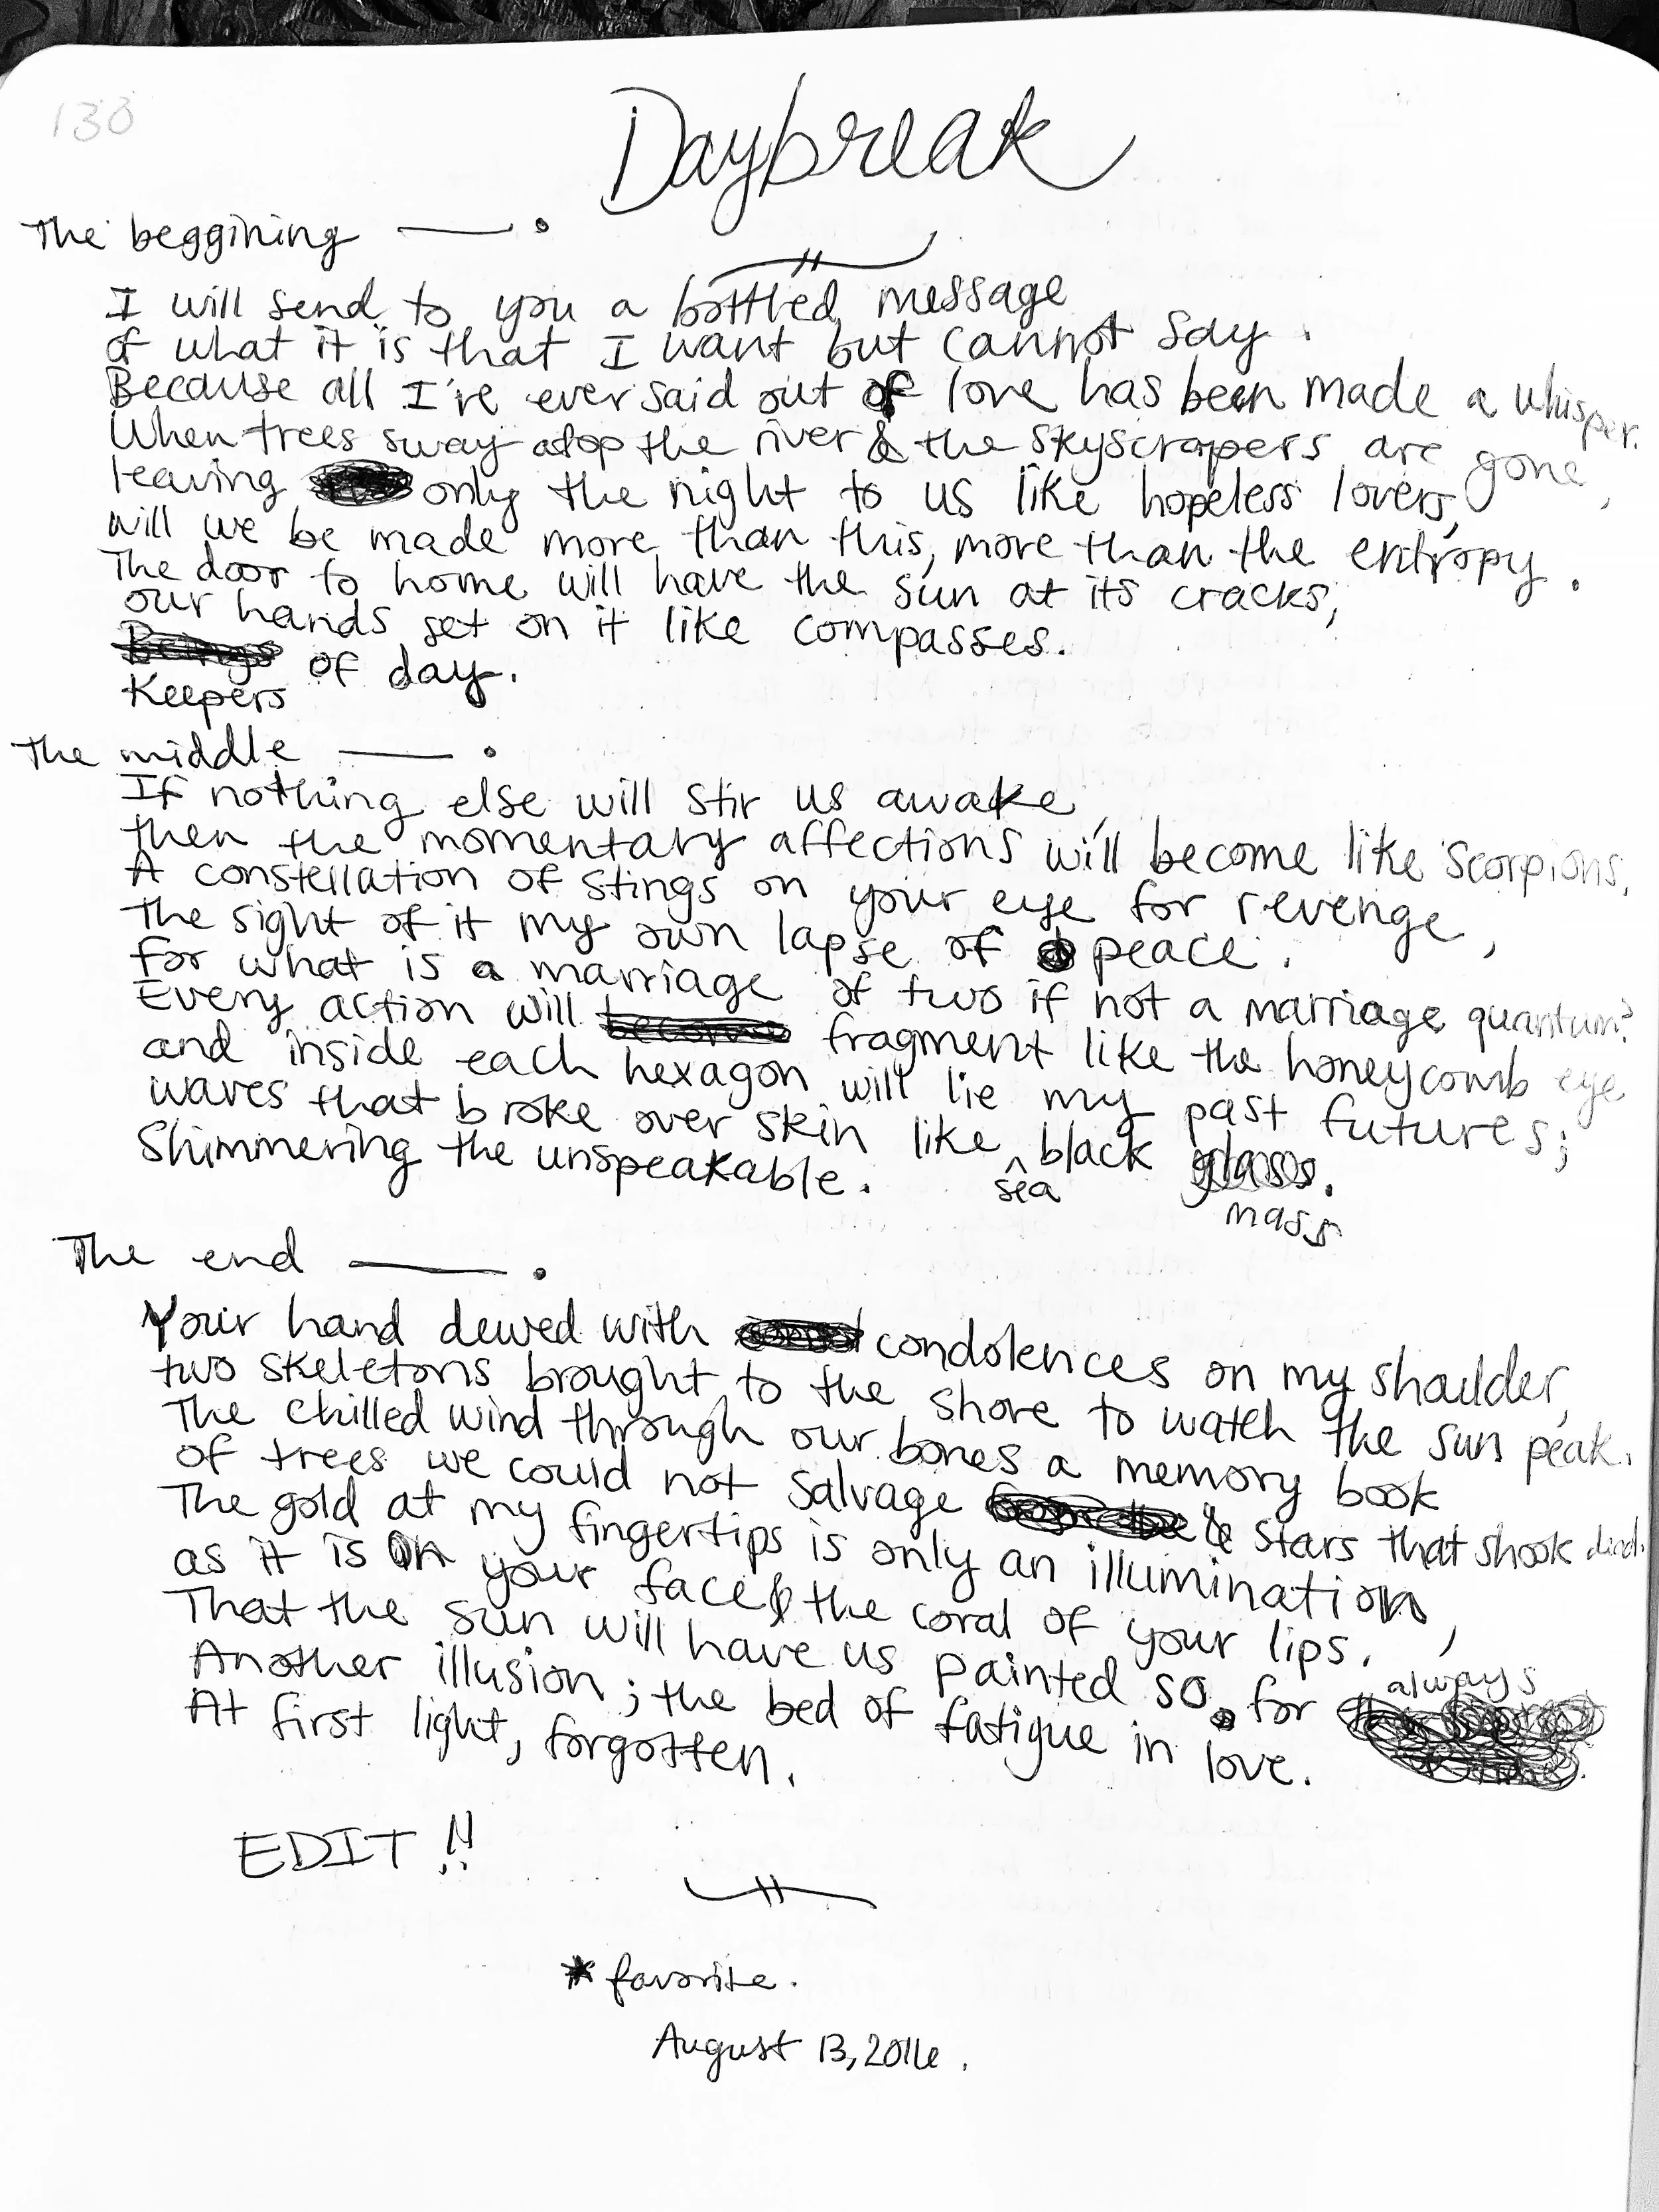 130
Daybreak
The beggining —.
I will send to you a bottled message
of what it is that I want but cannot say.
Because all I've ever said out of love has been made a whisper.
When trees sway atop the river & the skyscrapers are gone,
leaving only the night to us like hopeless lovers,
will we be made more than this, more than the entropy.
The door to home will have the sun at its cracks,
our hands set on it like compasses.
Beings of day.
Keepers
The middle —.
If nothing else will stir us awake,
then the momentary affections will become like scorpions.
A constellation of stings on your eye for revenge,
The sight of it my own lapse of peace.
For what is a marriage of two if not a marriage quantum?
Every action will become fragment like the honeycomb eye
and inside each hexagon will lie my past futures;
waves that broke over skin like black glass.
sea
mass
Shimmering the unspeakable.
The end —.
Your hand dewed with condolences on my shoulder,
two skeletons brought to the shore to watch the sun peak.
The chilled wind through our bones a memory book
of trees we could not salvage & stars that shook
The gold at my fingertips is only an illumination,
as it is on your face & the coral of your lips.
That the sun will have us painted so for
always
Another illusion; the bed of fatigue in love.
At first light, forgotten.
EDIT !!
* favorite.
August 13, 2016.